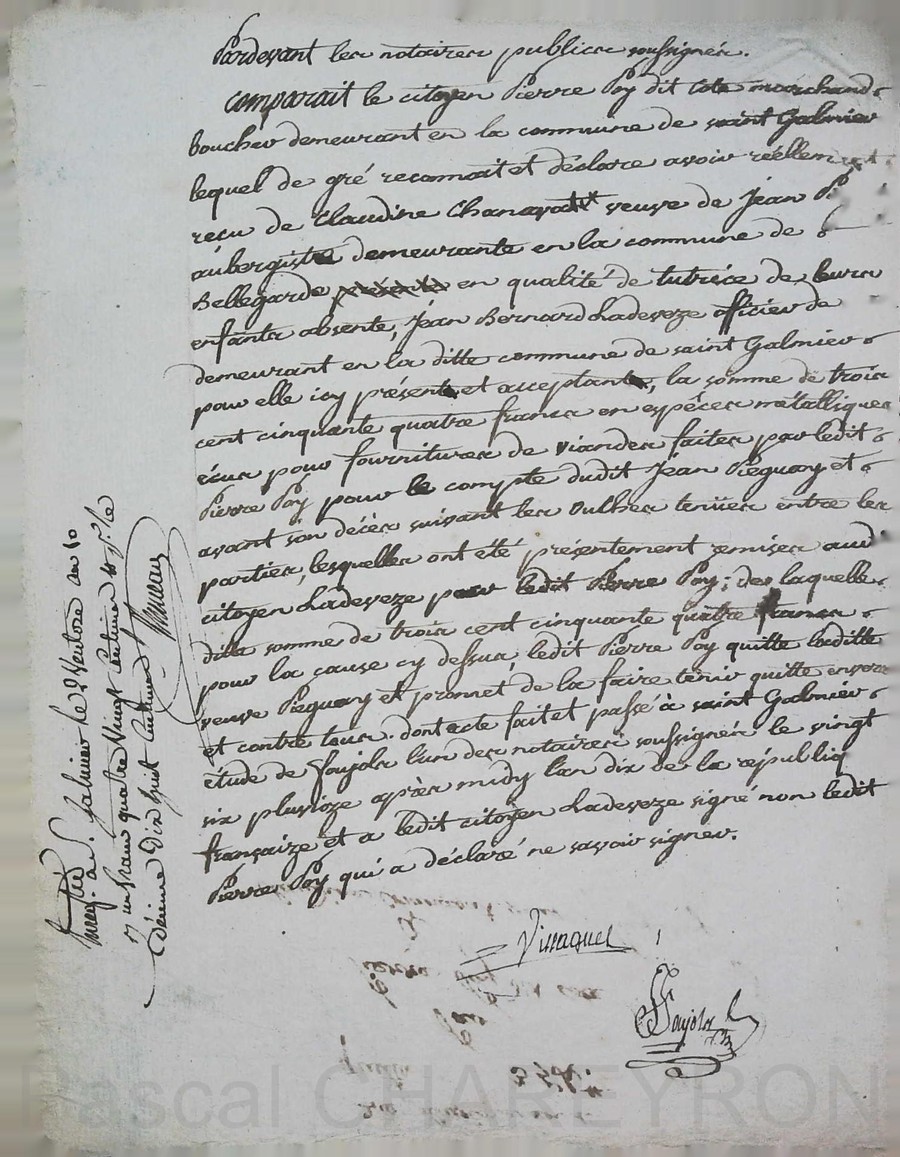 Pardevant les notaires publics soussignés.
Comparait le citoyen Pierre Poy dit marchand
boucher demeurant en la commune de saint Galmier
lequel de gré reconnait et déclare avoir réellement
reçu de Claudine Chanavat veuve de Jean
aubergiste demeurante en la commune de
Bellegarde en qualité de tutrice de leurs
enfants absente, Jean Bernard Ladeveze officier de
demeurant en la ditte commune de saint Galmier
pour elle icy présent et acceptant, la somme de trois
cent cinquante quatre francs en espèces métalliques
pour fournitures de viandes faites par ledit
Pierre Poy pour le compte dudit Jean Pieguay et
avant son décès suivant les tenües entre les
parties, lesquelles ont été présentement remises audit
citoyen Ladeveze par ledit Pierre Poy; de laquelle
ditte somme de trois cent cinquante quatre francs
pour la cause cy dessus, ledit Pierre Poy quitte laditte
veuve Pieguay et promet de la faire tenir quitte envers
et contre tous. dont acte fait et passé à saint Galmier
étude de Faujols l'un des notaires soussignés le vingt
six pluvioze après midy l'an dix de la républiq
françaize et a ledit citoyen Ladeveze signé non ledit
Pierre Poy qui a déclaré ne savoir signer.
Faujols
à S. Galmier le 2 Ventose an 10
un franc quatre vingt centimes
décime dix huit centimes
Pascal CHAREYRON